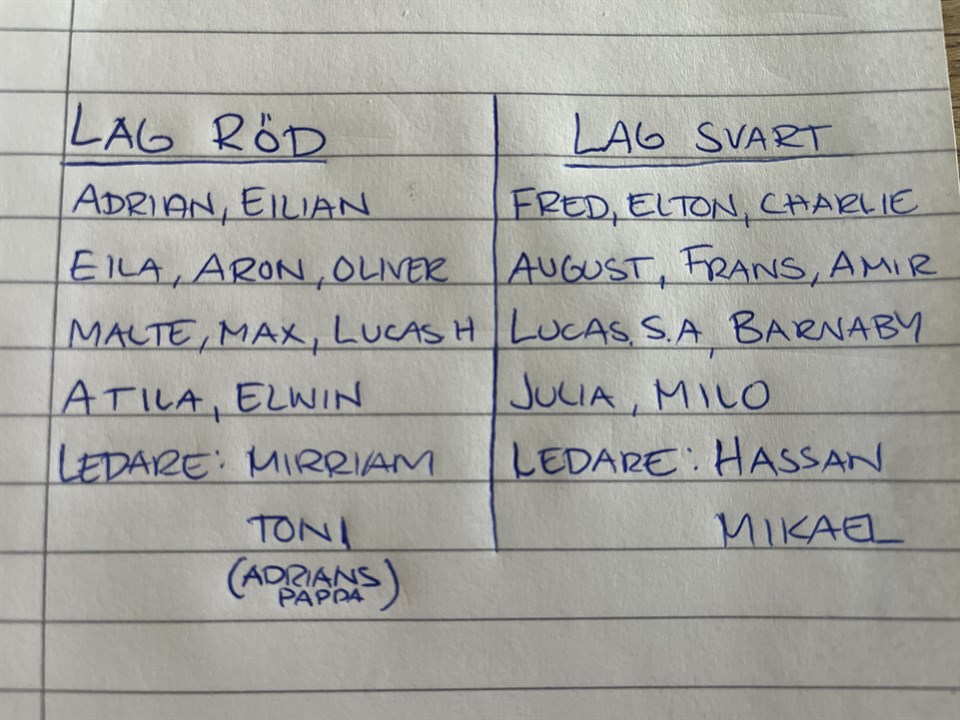 LAG RÖD
ADRIAN, EILIAN
EILA, ARON, OLIVER
MALTE, MAX, LUCAS H
ATILA, ELWIN
LEDARE: MIRRIAM
TONI
(ADRIANS
PAPPA)
LAG SVART
FRED, ELTON, CHARLIE
AUGUST, FRANS, AMIR
LUCAS. S.A, BARNABY
JULIA, MILO
LEDARE: HASSAN
MIKAEL